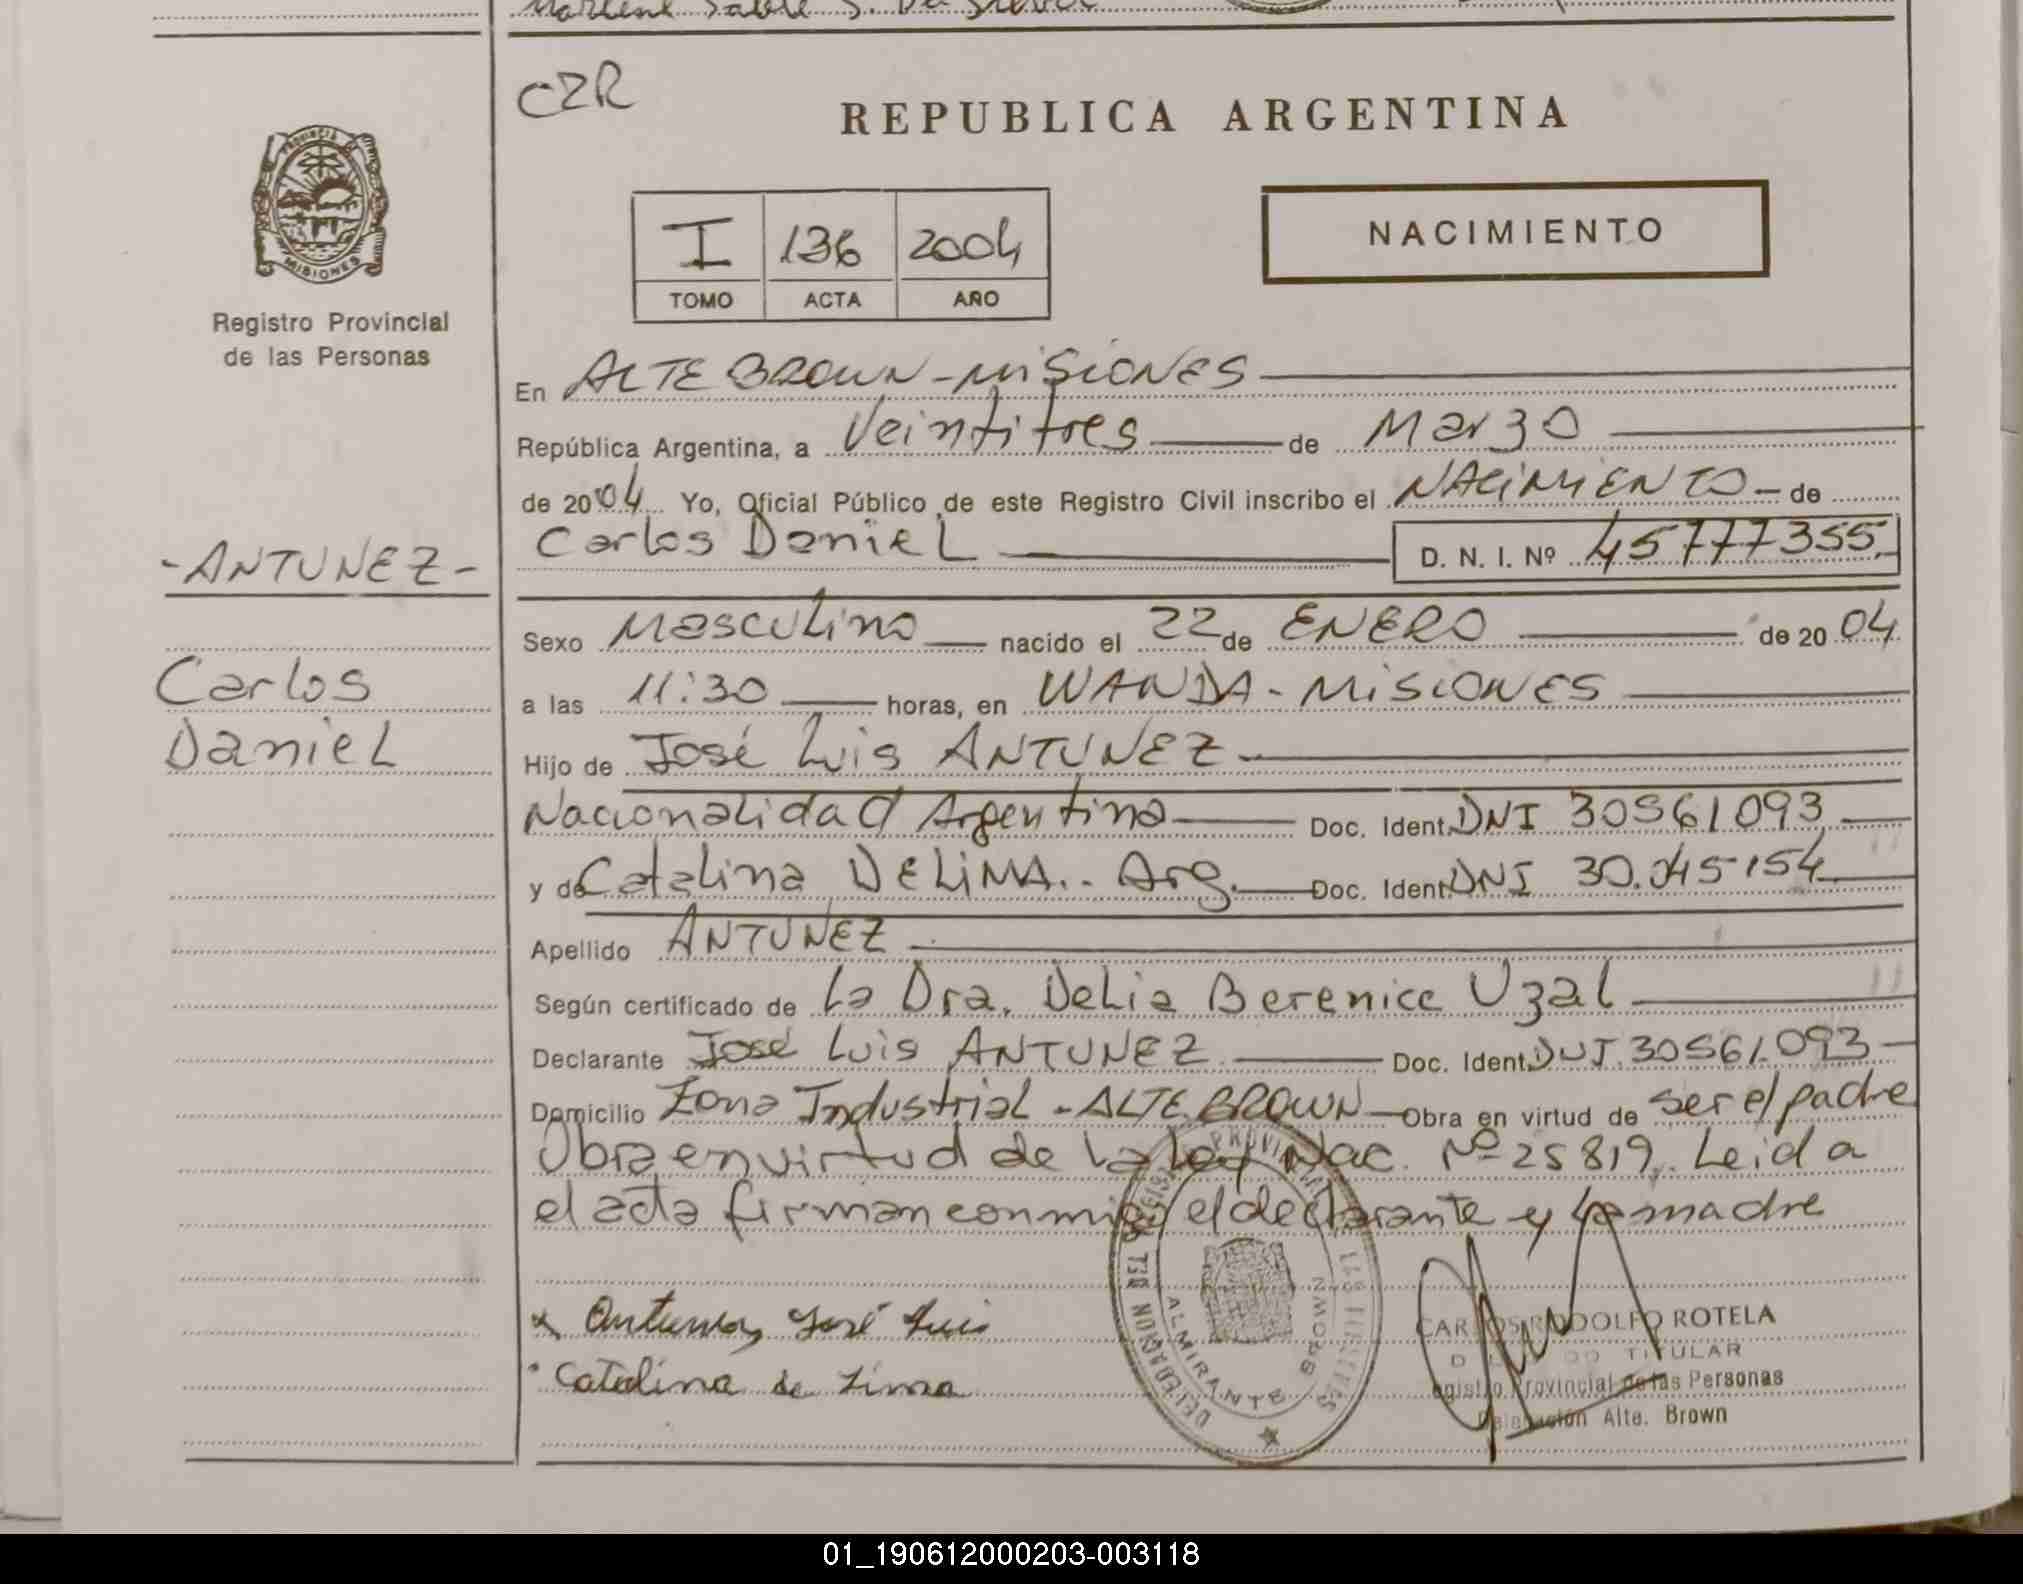 CZR
REPUBLICA ARGENTINA
PROVINCIA DE
MISIONES
Registro Provincial
de las Personas
I 136 2004
TOMO ACTA AÑO
NACIMIENTO
En ALTE BROWN - MISIONES
República Argentina, a Veintitres de Marzo
de 2004 Yo, Oficial Público de este Registro Civil inscribo el NACIMIENTO - de
Carlos Daniel D. N. I. Nº 45777355.
- ANTUNEZ -
Carlos
Daniel
Sexo Masculino nacido el 22 de ENERO de 2004
a las 11:30 horas, en WANDA - MISIONES
Hijo de José Luis ANTUNEZ
Nacionalidad Argentina Doc. Ident. DNI 30561093
y de Catalina DELIMA.. Arg. Doc. Ident. DNI 30.045154
Apellido ANTUNEZ
Según certificado de La Dra. Delia Berenice Uzal
Declarante José Luis ANTUNEZ Doc. Ident. DNI 30561.093
Domicilio Zona Industrial - ALTE BROWN Obra en virtud de ser el padre
Obra en virtud de la Ley Nac. Nº 25819. Leida
el acta firman conmigo el declarante y la madre
x Antunez José Luis
Catalina de Lima
ALMIRANTE BROWN
CARLOS RODOLFO ROTELA
DELEGADO TITULAR
Registro Provincial de las Personas
Delegación Alte. Brown
01_190612000203-003118